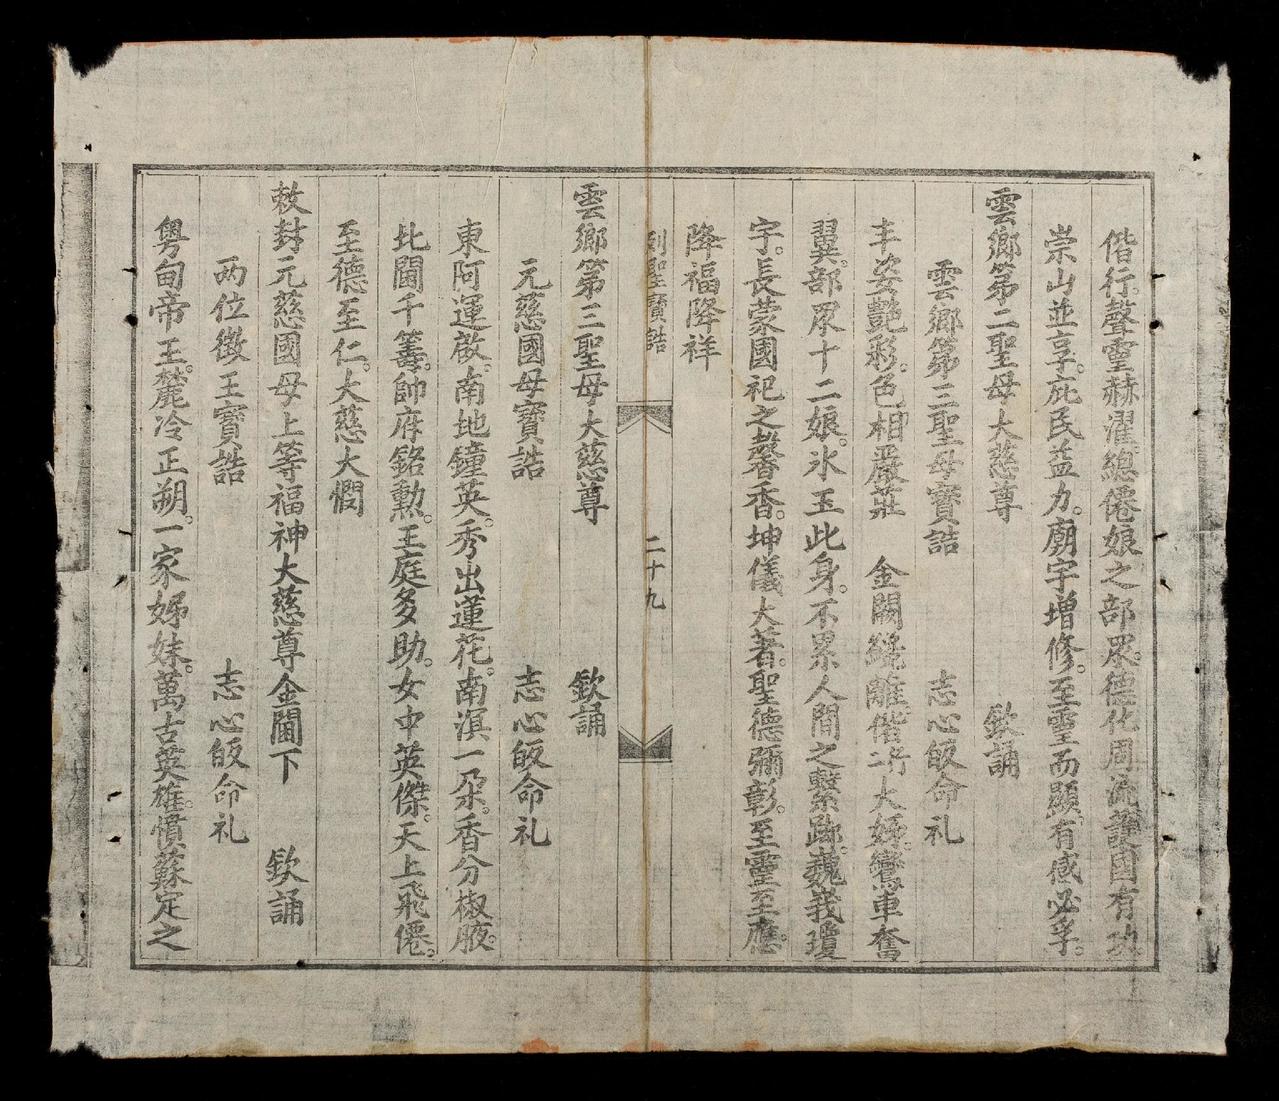 偕行。聲靈赫濯。總僊娘之部眾。德化周流。護國有功
崇山並享。庇民益力。廟宇增修。至靈而顯。有感必孚。
雲鄉第二聖母大慈尊 欽誦
雲鄉第三聖母寶誥 志心皈命礼
丰姿艶彩。色相嚴莊 金闕 雝。偕 大姊。鸞車奮
翼。部眾十二娘。氷玉此身。不累人間之繫跡。巍峩瓊
宇。長蒙國祀之馨香。坤儀大著。聖德彌彰。至靈至應。
降福降祥
列聖寶誥 二十九
雲鄉第三聖母大慈尊 欽誦
元慈國母寶誥 志心皈命礼
東阿運啟。南地鐘英。秀出蓮花。南溟一朶。香分椒腋。
北閫千籌。帥府銘勲。王庭多助。女中英傑。天上飛僊。
至德至仁。大慈大憫
敕封元慈國母上等福神大慈尊金闕下 欽誦
兩位徵王寶誥 志心皈命礼
粤甸帝王。麓泠正朔。一家姊妹。萬古英雄。憤蘇定之